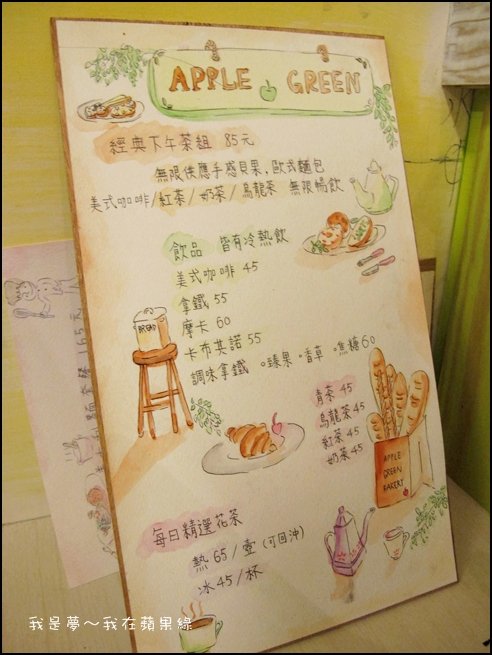 APPLE GREEN
經典下午茶組 85元
無限供應手感貝果,歐式麵包
美式咖啡/紅茶/奶茶/烏龍茶 無限暢飲
飲品 皆有冷熱飲
美式咖啡 45
拿鐵 55
摩卡 60
卡布其諾 55
調味拿鐵 ∘臻果 ∘香草 ∘焦糖 60
BREAD
青茶 45
烏龍茶 45
紅茶 45
奶茶 45
APPLE
GREEN
BAKERY
每日精選花茶
熱 65/壺 (可回沖)
冰 45/杯
套餐 165元
我是夢~我在蘋果綠